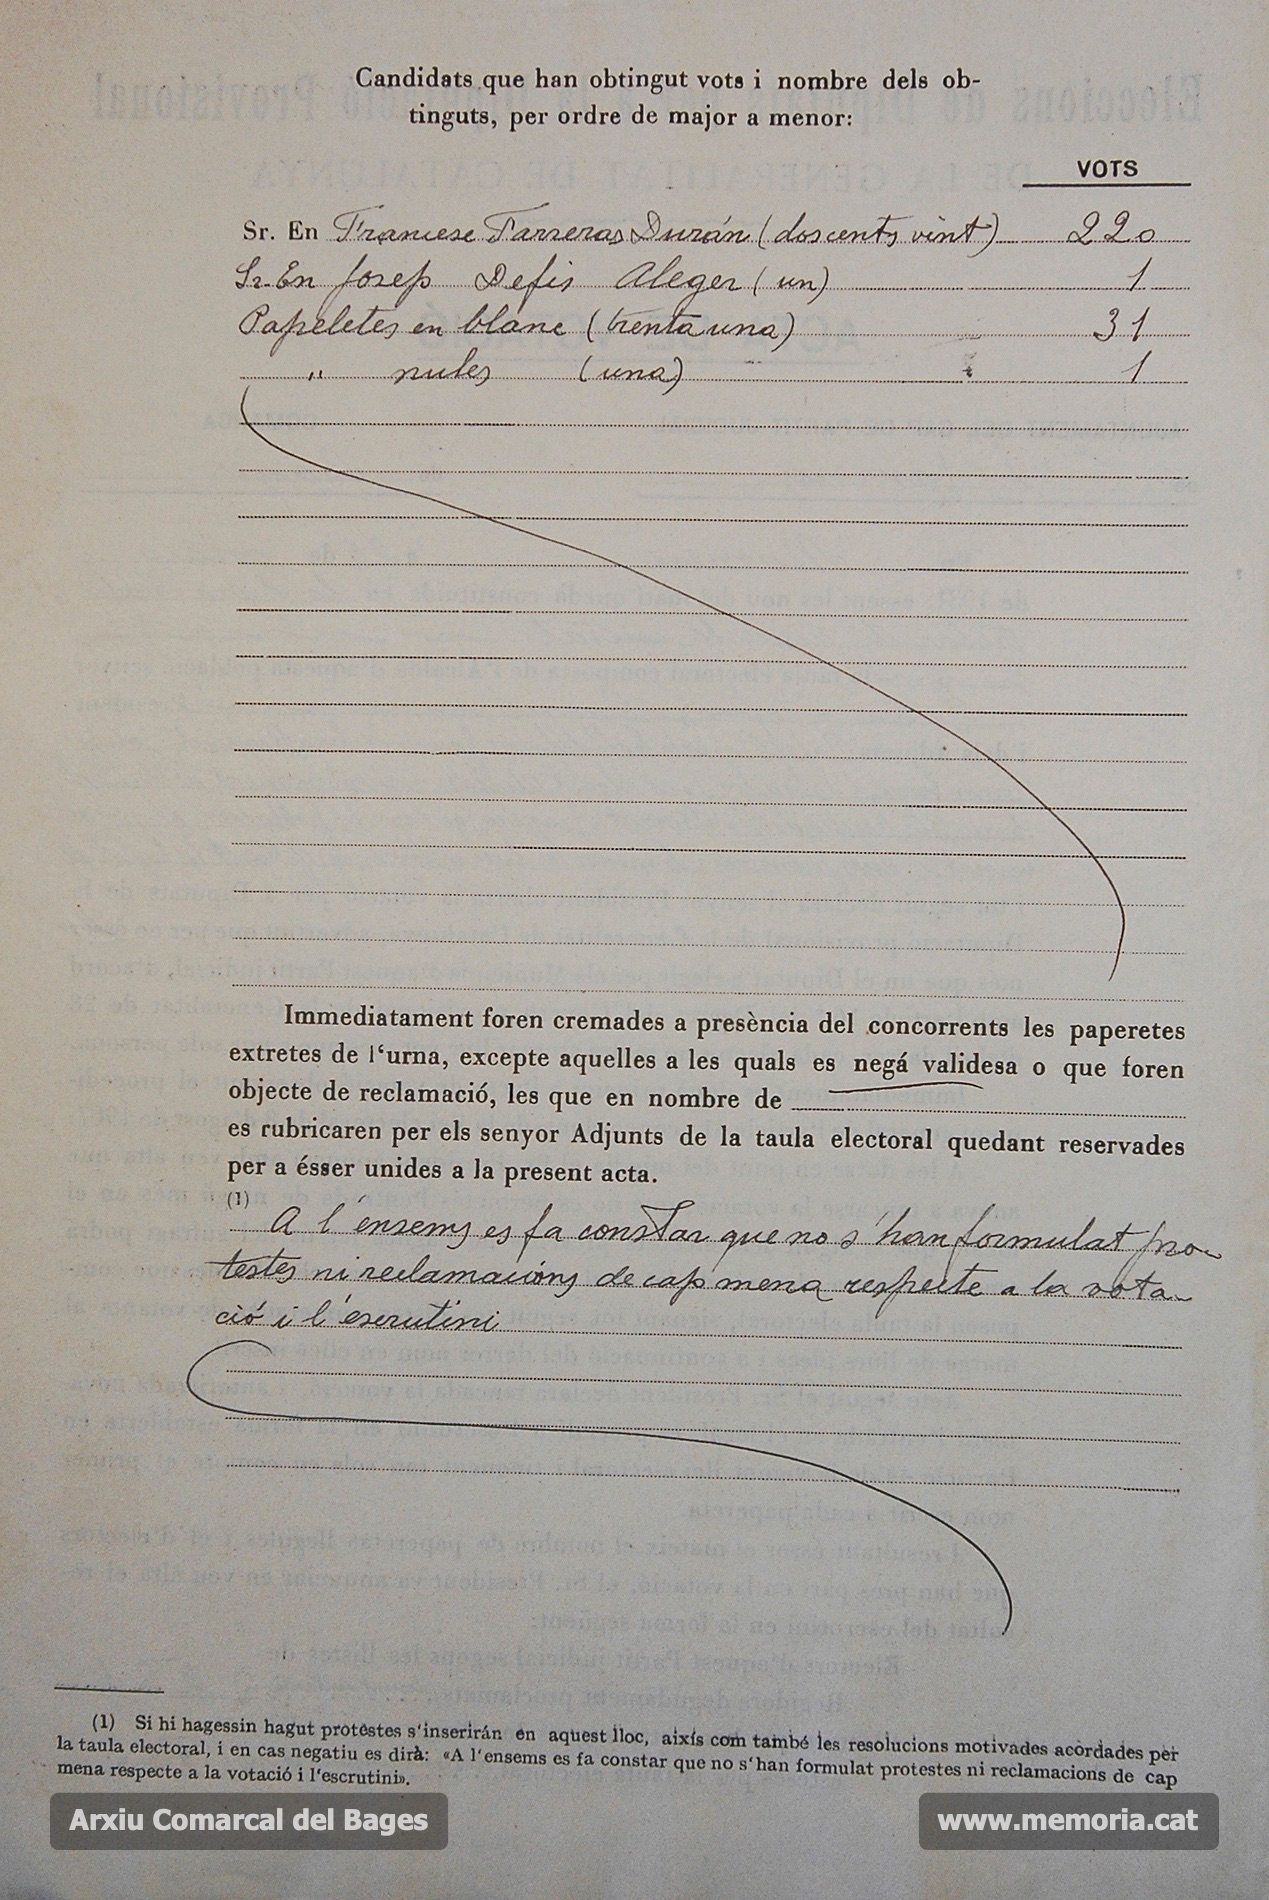 Candidats que han obtingut vots i nombre dels ob-
tinguts, per ordre de major a menor:
VOTS
Sr. En Francesc Farreras Durán (doscents vint) 220
Sr. En Josep Defis Aleger (un) 1
Papeletes en blanc (trenta una) 31
" nules (una) 1
Immediatament foren cremades a presència del concorrents les paperetes
extretes de l'urna, excepte aquelles a les quals es negá validesa o que foren
objecte de reclamació, les que en nombre de
es rubricaren per els senyor Adjunts de la taula electoral quedant reservades
per a ésser unides a la present acta.
(1)
A l'ensems es fa constar que no s'han formulat pro-
testes ni reclamacións de cap mena respecte a la vota-
ció i l'escrutini
(1) Si hi hagessin hagut protestes s'inserirán en aquest lloc, aixís com també les resolucions motivades acordades per
la taula electoral, i en cas negatiu es dirà: «A l'ensems es fa constar que no s'han formulat protestes ni reclamacions de cap
mena respecte a la votació i l'escrutini».
Arxiu Comarcal del Bages
www.memoria.cat